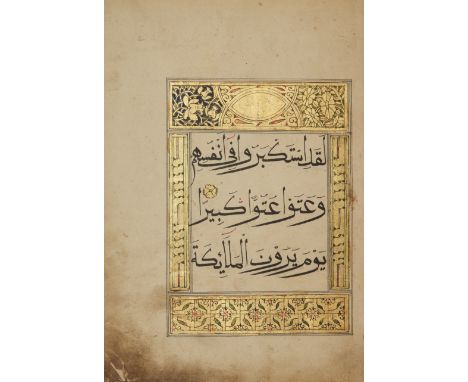 لَقَدِ اسْتَكْبَرُوا فِي أَنْفُسِهِمْ
وَعَتَوْا عُتُوًّا كَبِيرًا
يَوْمَ يَرَوْنَ الْمَلَائِكَةَ